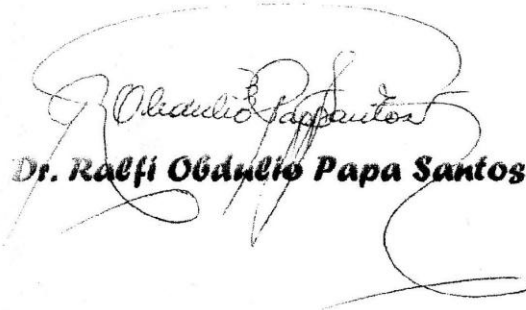 R Obdulio Papa Santos
Dr. Ralfi Obdulio Papa Santos